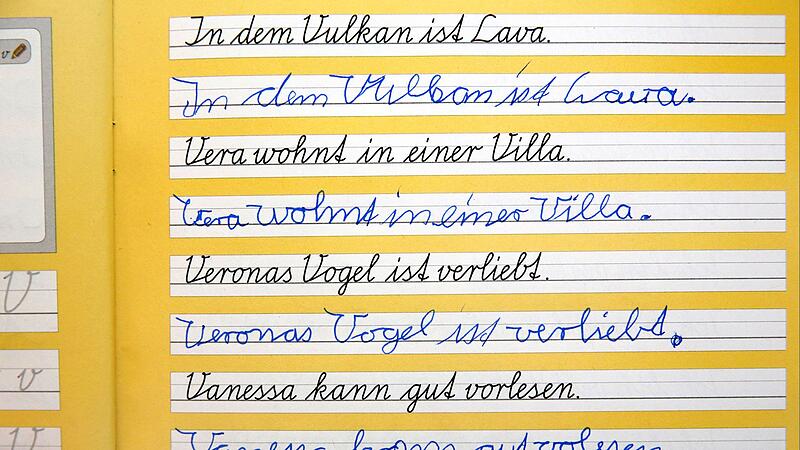 In dem Vulkan ist Lava.
In dem Vulkan ist Lava.
Vera wohnt in einer Villa.
Vera wohnt in einer Villa.
Veronas Vogel ist verliebt.
Veronas Vogel ist verliebt.
Vanessa kann gut vorlesen.
Vanessa kann gut vorlesen
v
V
v
V